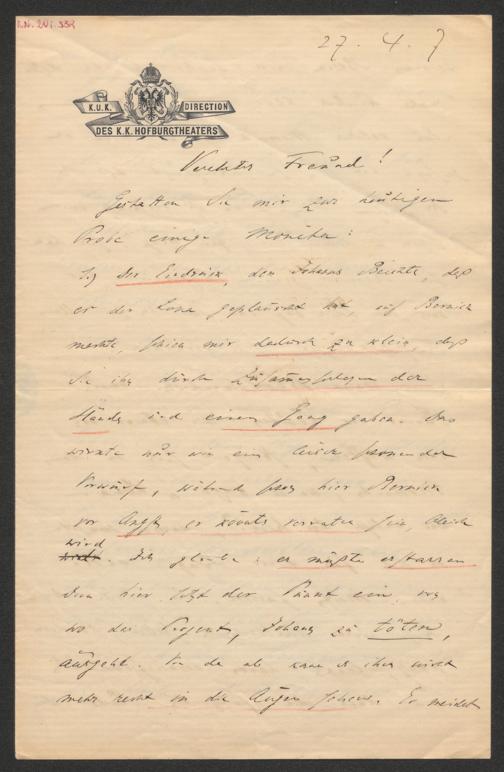 I.N. 241.338
27. 4. 7
K.U.K. DIRECTION
DES K.K. HOFBURGTHEATERS
Verehrter Freund!
Gestatten Sie mir zur heutigen
Probe einige Monita:
1.) Der Eindruck, den Johanns Beichte, daß
er der Lona geplauscht hat, auf Bernick
machte, schien mir dadurch zu klein, daß
Sie ihn durch Zusammenschlagen der
Hände und einen Gang gaben. Das
wirkte nur wie ein leise
Vorwurf, während hier Bernick
vor Angst, er könnte verraten sein, bleich
wird. Ich glaube: er müßte erstarren
Denn hier setzt der Punkt ein, von
wo das Projekt, Johann zu töten,
ausgeht. Von da ab kann er ihm nicht
mehr recht in die Augen sehen. Er meidet